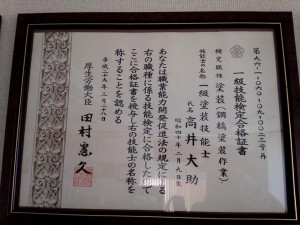 一級技能検定合格証書
検定職種 塗装(鋼橋塗装作業)
技能士の名称 一級塗装技能士
氏名 高井大助
昭和四十年二月九日生
あなたは職業能力開発促進法の規定による
右の職種に係る技能検定に合格したので
ここに合格証書を授与し右の技能士の名称を
称することを認める
平成二十五年三月二十八日
厚生労働大臣 田村憲久